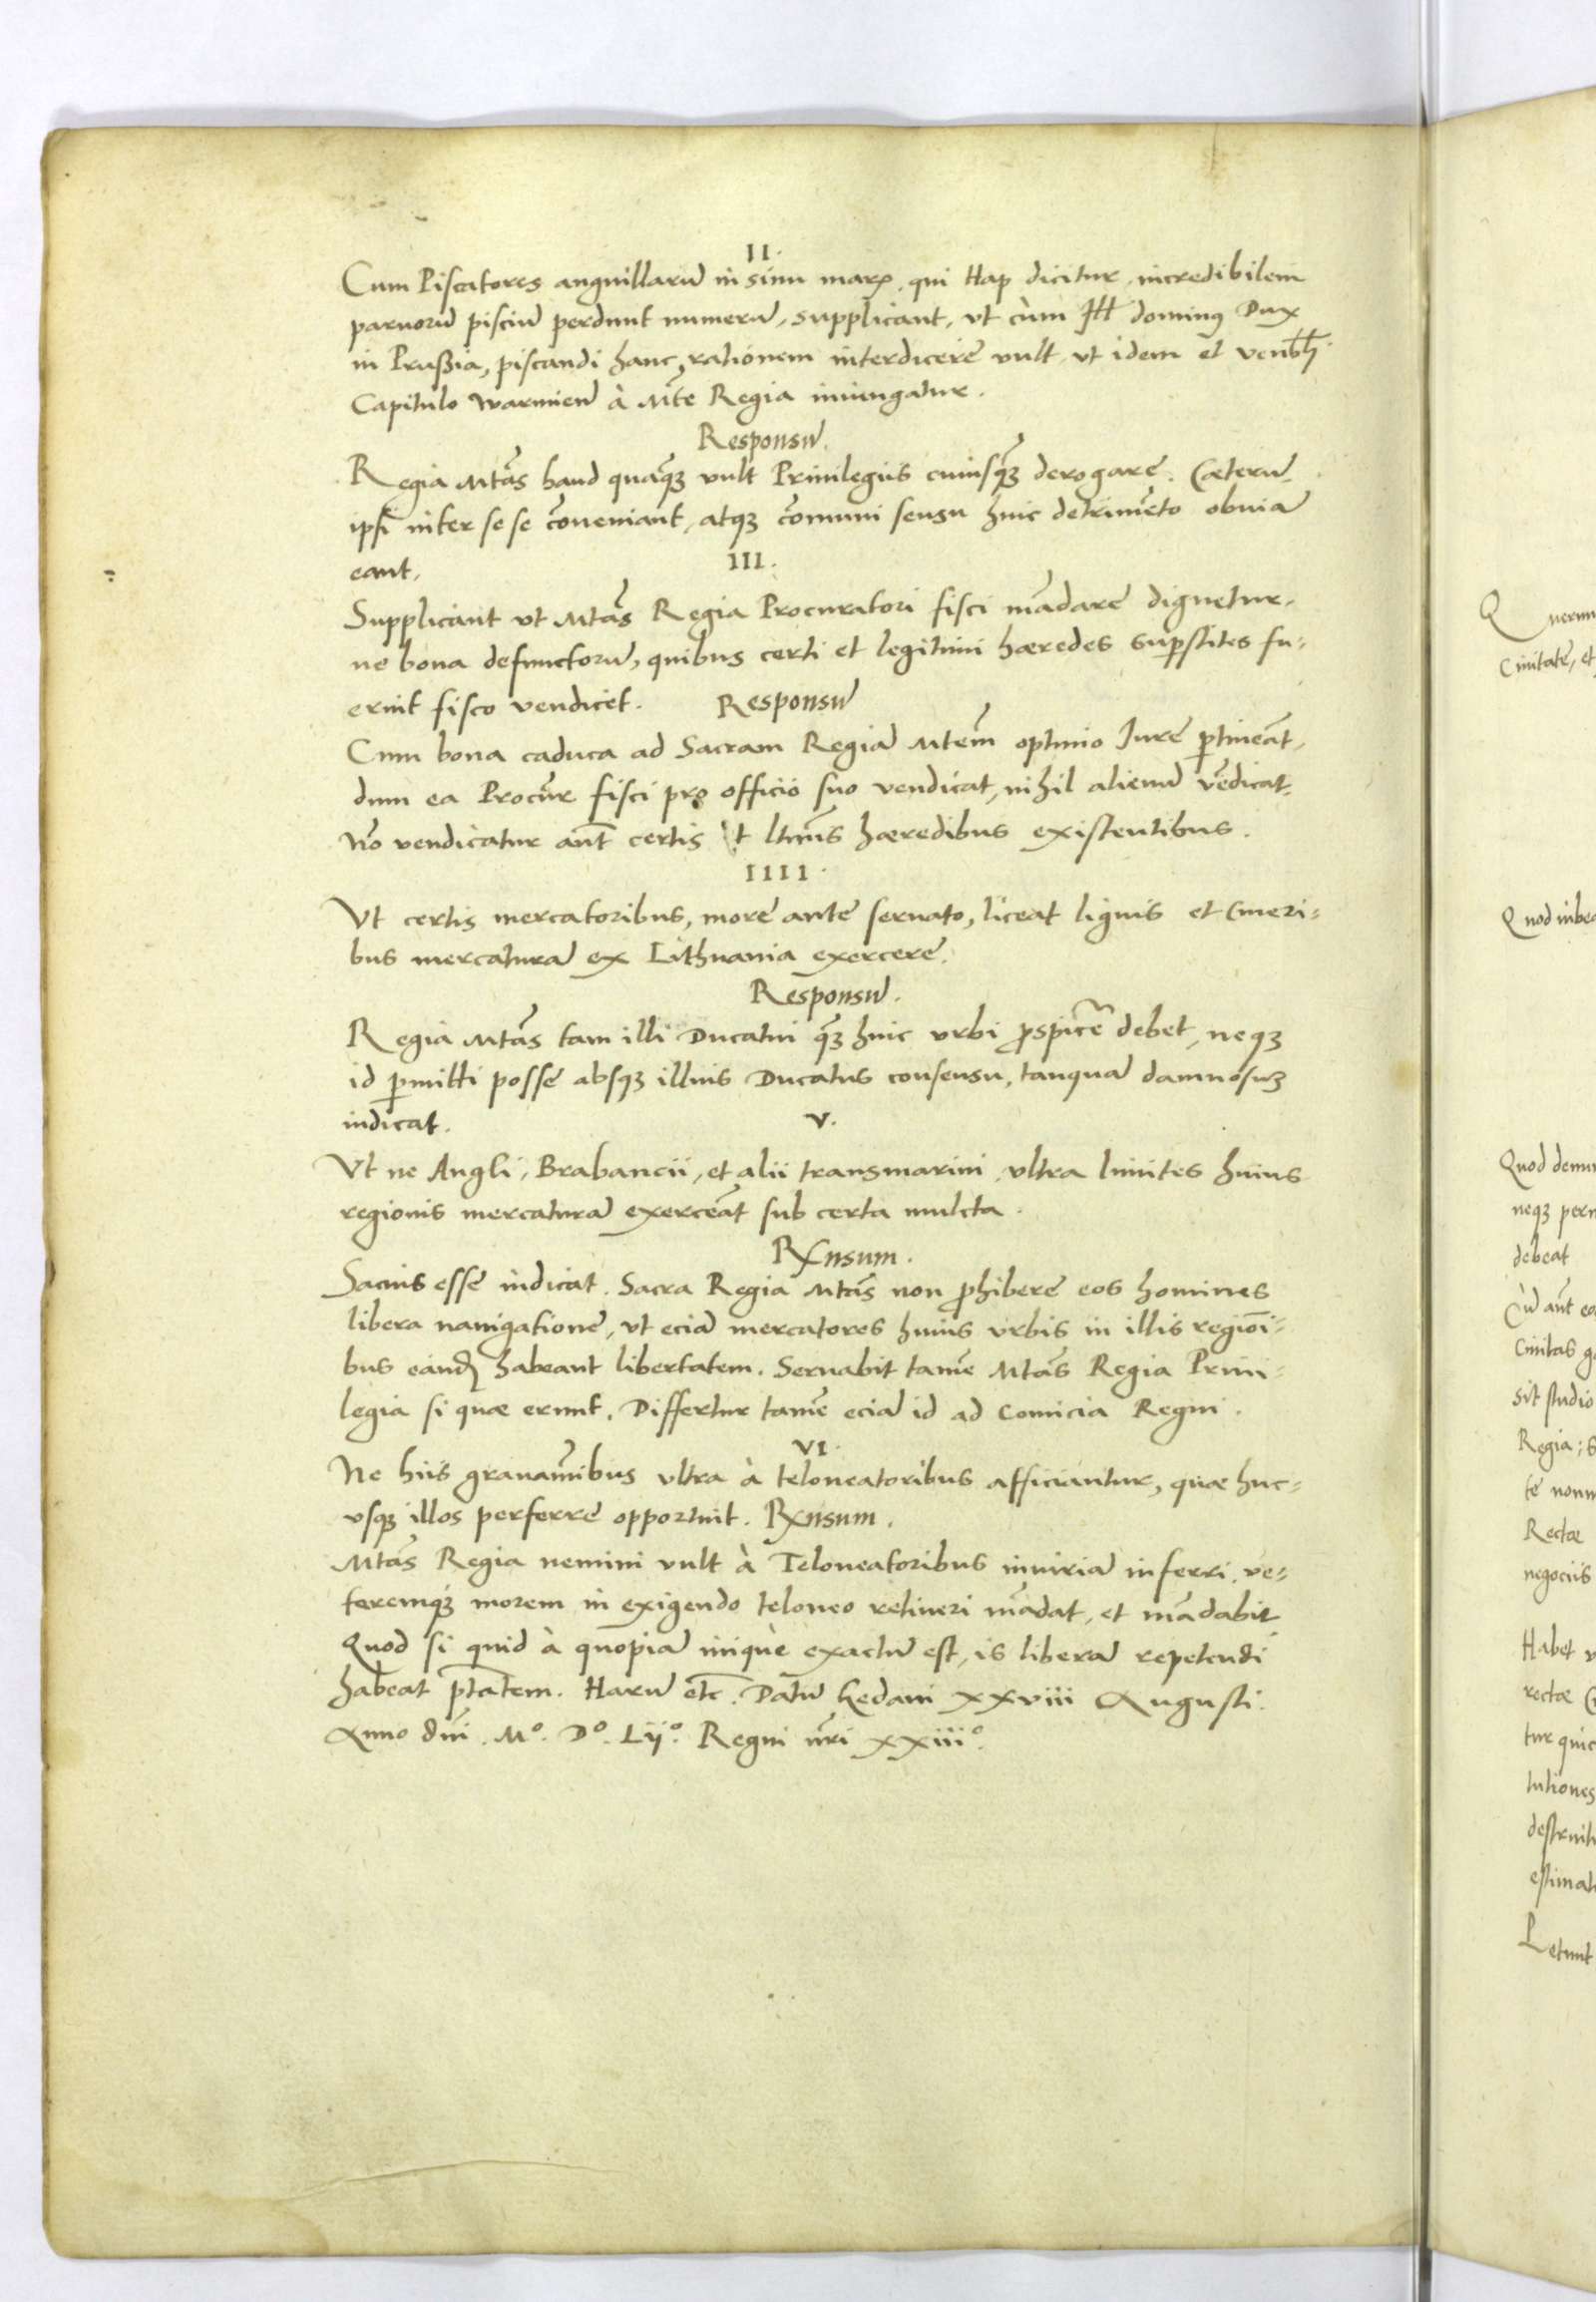 II.
Cum Piscatores anguillarū in sinu mar, qui Hap dicitur, incredibilem
paruorū pisciū perdunt numerū, supplicant, vt cùm Ill dominꝯ Dux
in Prußia, piscandi hanc rationem interdicere vult, vt idem et venbli
Capitulo Warmien̄ à Mte Regia iniungatur.
Responsū.
Regia Mtās haud quāqꝫ vult Priuilegiis cuiusqꝫ derogare. Cæterū
ipsi inter se se cōueniant, atqꝫ cōmuni sensu huic detrimēto obuiā
eant,
III.
Supplicant vt Mtās Regia Procuratori fisci mādare dignetur,
ne bona defunctorū, quibus certi et legitimi hæredes sup̄stites fu-
erint fisco vendicet. Responsū
Cum bona caduca ad Sacram Regiā Mtēm optimo Iure ꝑtineāt,
dum ea Procūr fisci pro officio suo vendicat, nihil alienū vēdicat,
Nō vendicatur aūt certis et ltimis hæredibus existentibus.
IIII.
Vt certis mercatoribus, more ante seruato, liceat lignis et Cineri-
bus mercaturā ex Lithuania exercere.
Responsū.
Regia Mtās tam illi Ducatui qꝫ huic vrbi ꝓspicē debet, neqꝫ
id ꝑmitti posse absqꝫ illius Ducatus consensu, tanquā damnosuꝫ
iudicat.
V.
Vt ne Angli, Brabancii, et alii transmarini, vltra limites huius
regionis mercaturā exerceāt sub certa mulcta.
Rxnsum.
Sacius esse iudicat Sacra Regia Mtās non ꝓhibere eos homines
libera nauigatione, vt eciā mercatores huius vrbis in illis regiōi-
bus eand habeant libertatem. Seruabit tamē Mtās Regia Priui-
legia si quæ erunt. Differtur tamē eciā id ad Comicia Regni.
VI.
Ne hiis grauamībus vltra à teloneatoribus afficiantur, quæ huc-
vsqꝫ illos perferre opportuit. Rxnsum.
Mtās Regia nemini vult à Teloneatoribus iniuriā inferri, ve-
teremqꝫ morem in exigendo teloneo retineri mādat, et mādabit
Quod si quid à quopiā iniquè exactū est, is liberā repetendi
habeat ptātem. Harū etc. Datū Gedani xxviii Augusti.
Anno dni. Mº. Dº. Lijº. Regni nri xxiiiº.
Q uerun
Ciuitate, et
Quod iubea
Quod demu
neqꝫ perm
debeat
Cū aūt eo
Ciuitas g
sit studio
Regia; s
te nonn
Rectæ
negociis
Habet v
rectæ
tur quic
tutiones
destruit
estimat
Petunt